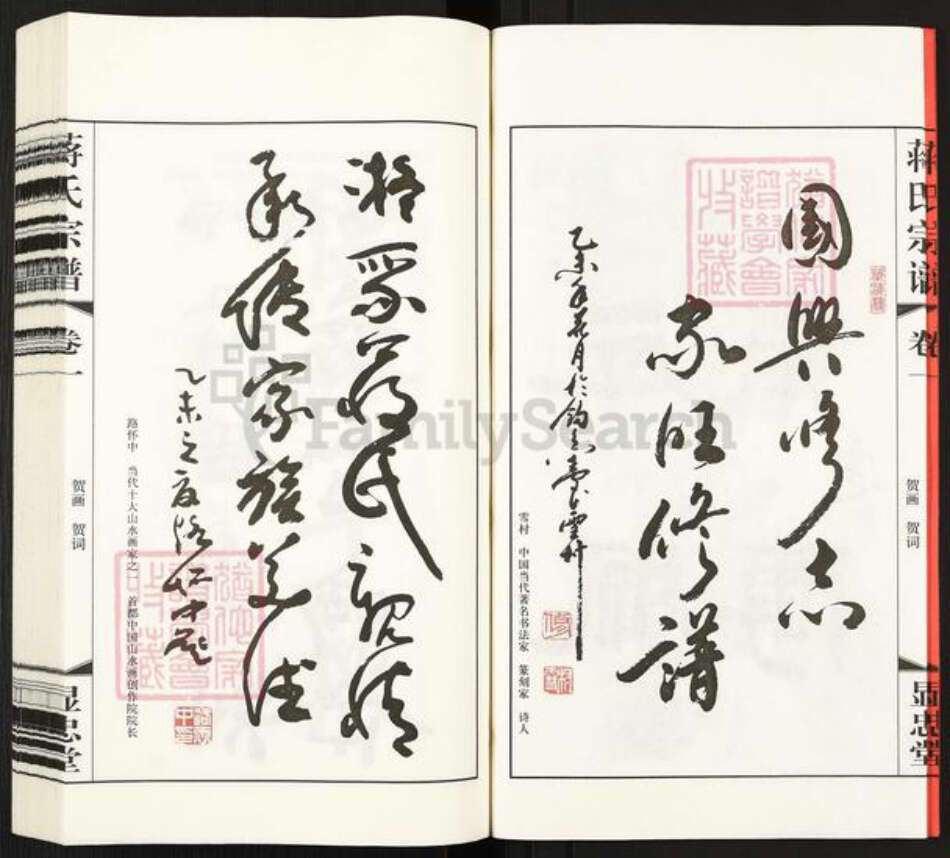 蒋氏宗谱
卷一
贺画 贺词
显忠堂
國興修志
家旺修譜
乙未年
雪村 中国当代著名书法家 篆刻家 诗人
凝聚蒋氏親情
承傳家族美德
乙未之夏路怀中题
路怀中 当代十大山水画家之一 首都中国山水画创作院院长
蒋氏宗谱
卷一
贺画 贺词
显忠堂
FamilySearch